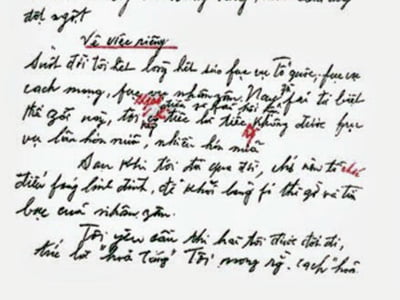 đột ngột
Về việc riêng
Suốt đời tôi hết lòng hết sức fục vụ Tổ quốc, fục vụ
cách mạng, fục vụ nhân zân. Nay zù fải từ biệt
điều zì fải hối hận
thế zới này, tôi tiếc là tiếc không được fục
vụ lâu hơn nữa, nhiều hơn nữa
Sau khi tôi đã qua đời, chớ nên tổ chức
điếu fúng linh đình, để khỏi lãng fí thì zờ và tiền
bạc của nhân zân.
Tôi yêu cầu thi hài tôi được đốt đi,
tức là "hoả táng" Tôi mong rằng cách "hoả